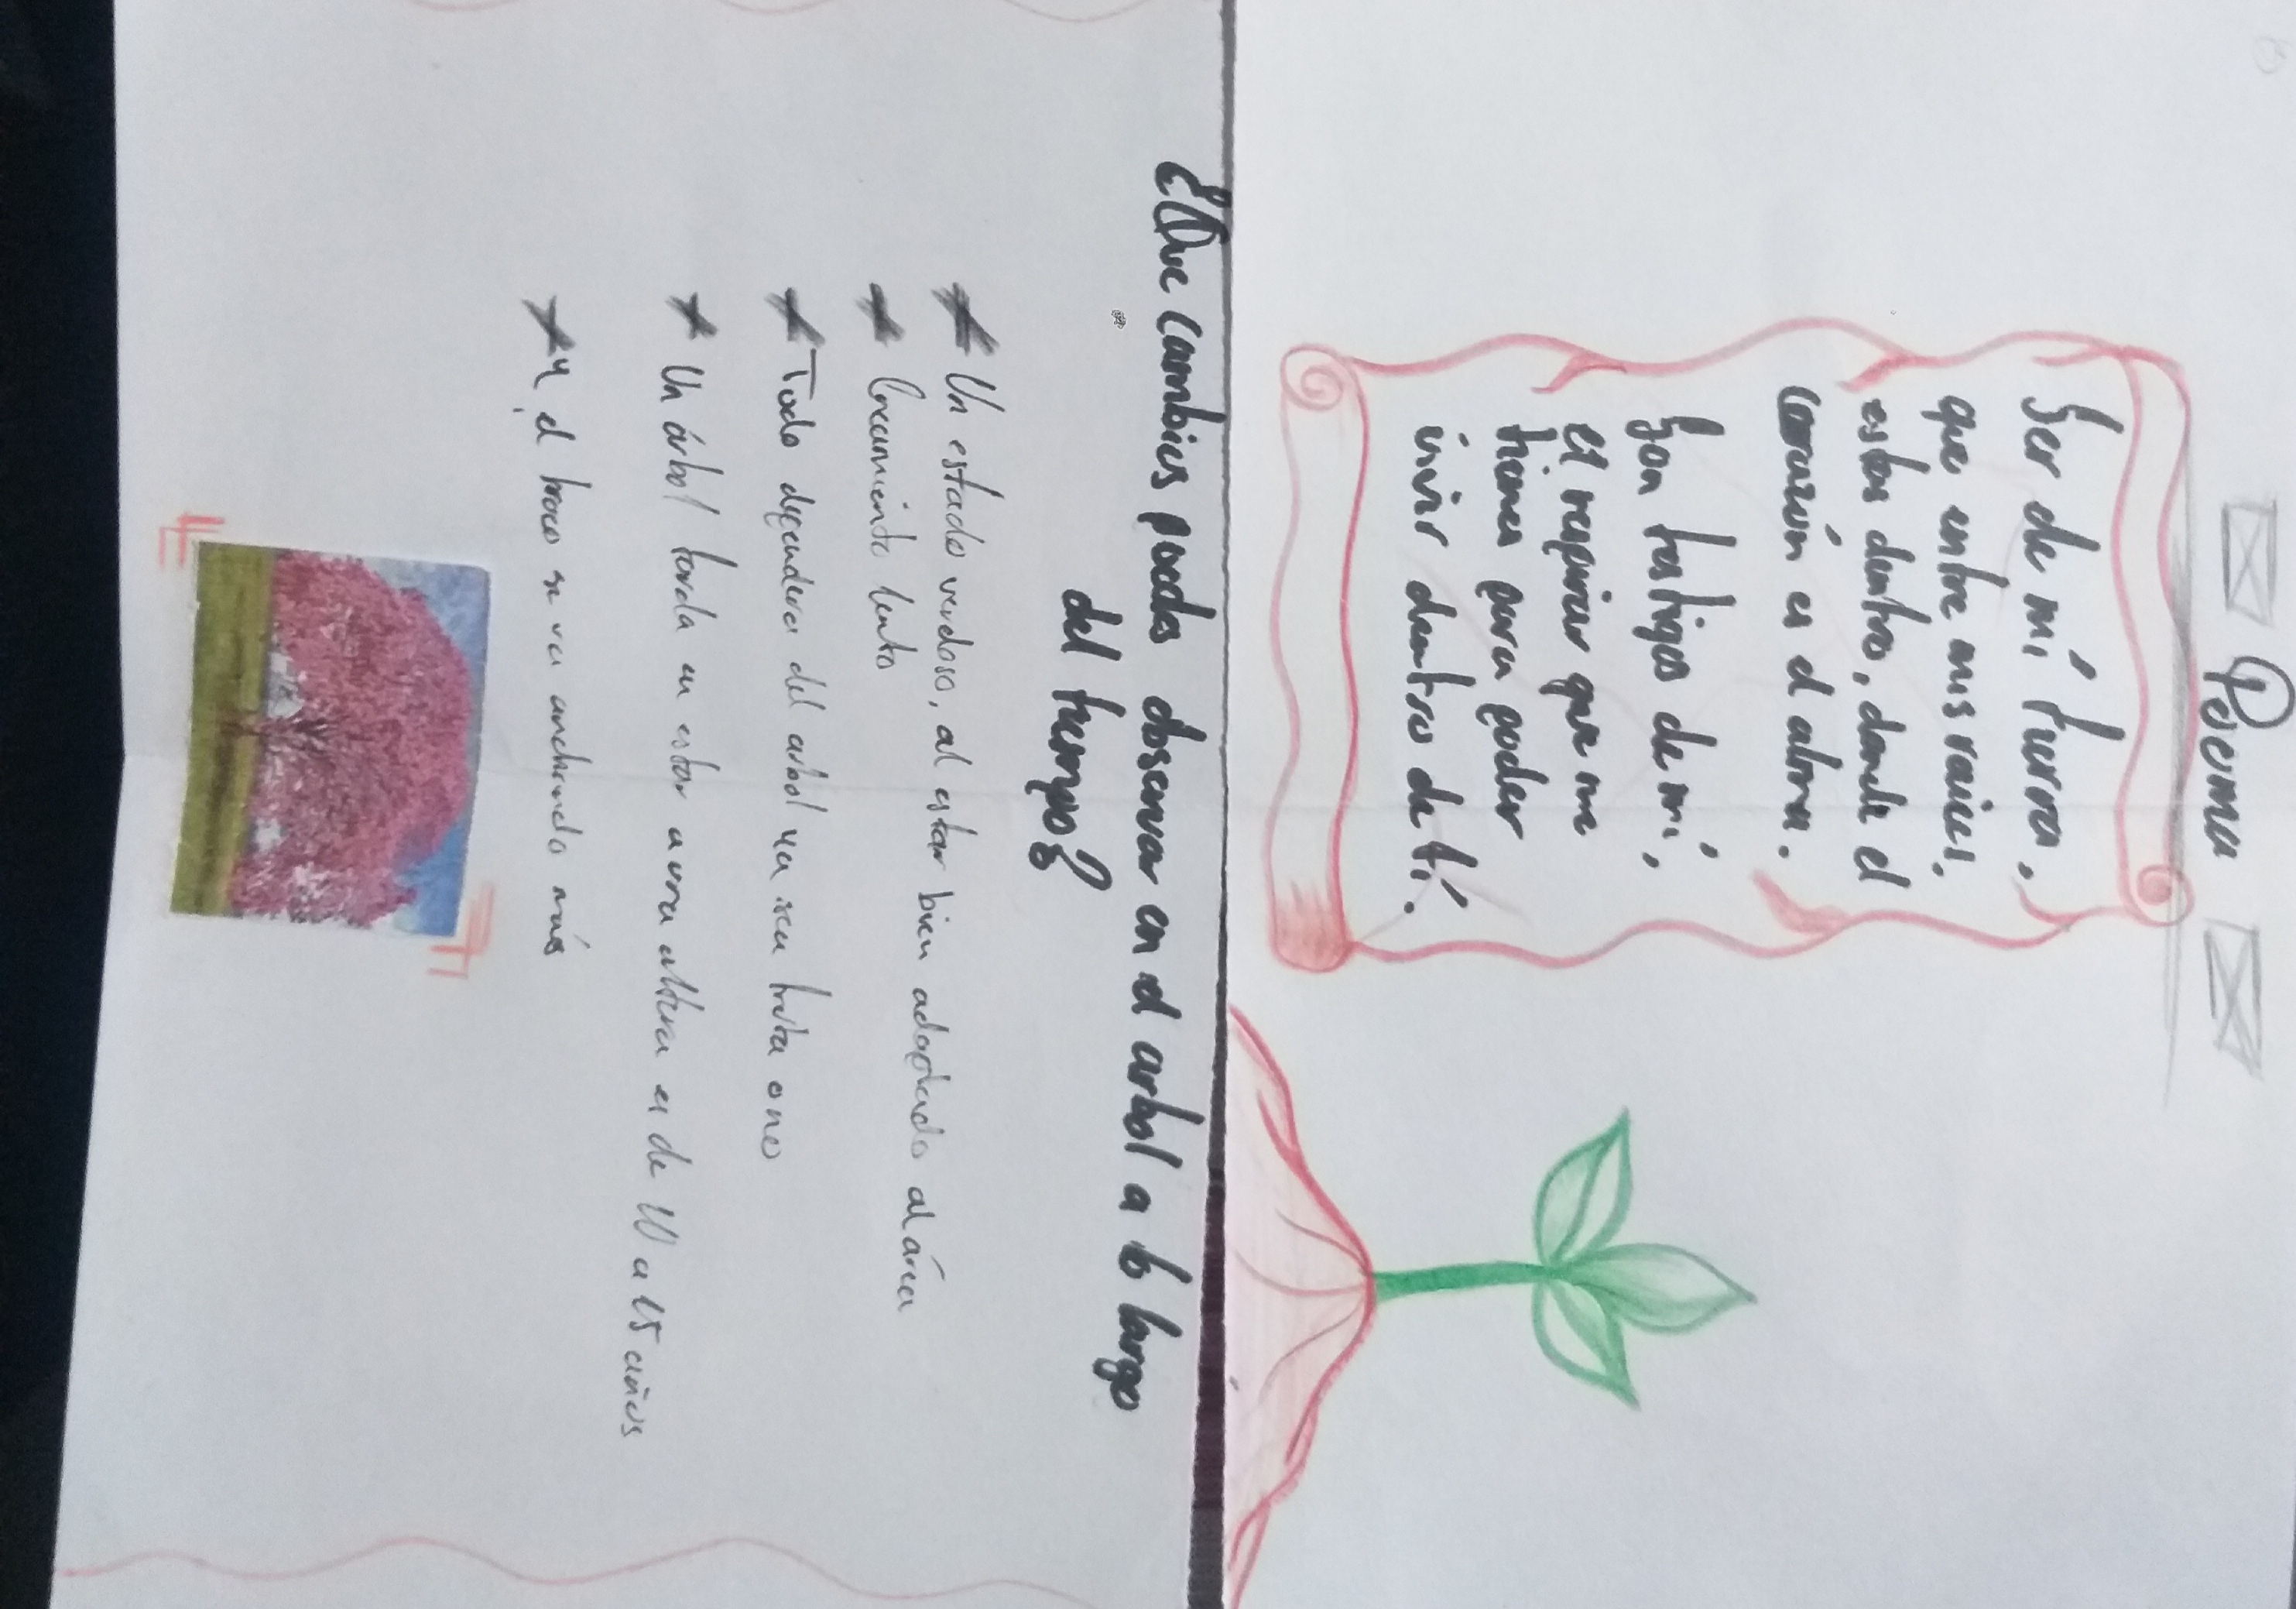 Poema
Ser de mí tierra,
que entre mis raices,
estas dentro, donde el
corazón es el alma.
Son testigos de mí,
el respirar que me
tienes para poder
vivir dentro de tí.
¿Que cambios puedes observar en el arbol a lo largo
del tiempo?
Un estado verdoso, al estar bien adaptado al área
Crecimiento lento
Todo dependera del arbol ya sea fruta o no
Un árbol tarda en estar a una altura es de 10 a 15 años
Y el troco se va anchando más